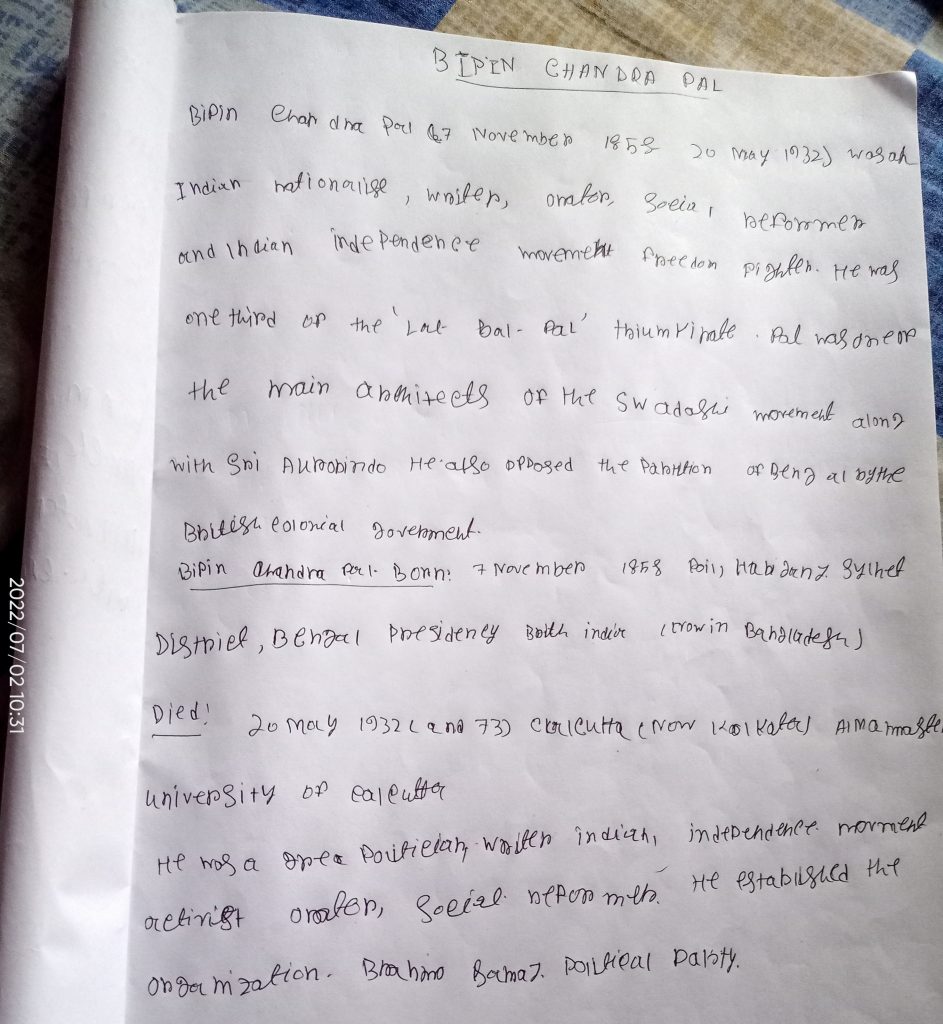 BIPIN CHANDRA PAL
Bipin Chandra Pal (7 November 1858 20 May 1932) was ah
Indian nationalise, writer, orator, Social reformmer
and Indian independence movement freedom fighter. He was
one third of the 'Lal bal- Pal' triumvirate. Pal was one of
the main architects of the Swadashi movement along
with Sri Aurobindo He also opposed the Partition of Bengal by the
British colonial goverment.
Bipin Chandra Pal- Born: 7 November 1858 Poil, Habiganz Sylhet
District, Bengal Presidency British india (now in Bangladesh)
Died! 20 may 1932 (and 73) Calcutta (Now Kolkata) Alma maste
university of calcutta
He was a Politician writer indian, independence movment
activist orator, Social reformmer. He established the
organization. Brahmo Samaj. political party.
2022/07/02 10:31